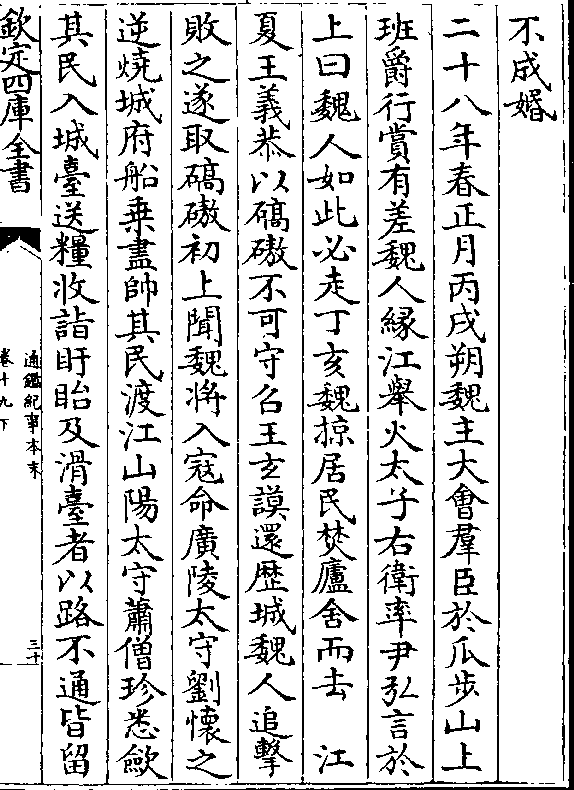 不成婚
二十八年春正月丙戌朔魏主大會羣臣於瓜步山上
班爵行賞有差魏人緣江舉火太子右衛率尹弘言於
上曰魏人如此必走丁亥魏掠居民焚廬舍而去　江
夏王義恭以碻磝不可守召王玄謨還歴城魏人追擊
敗之遂取碻磝初上聞魏将入寇命廣陵太守劉懷之
逆燒城府船乗盡帥其民渡江山陽太守蕭僧珍悉歛
其民入城臺送糧收詣盱眙及滑臺者以路不通皆留
欽定四庫全書
通鑑紀事本末
卷十九下
三十